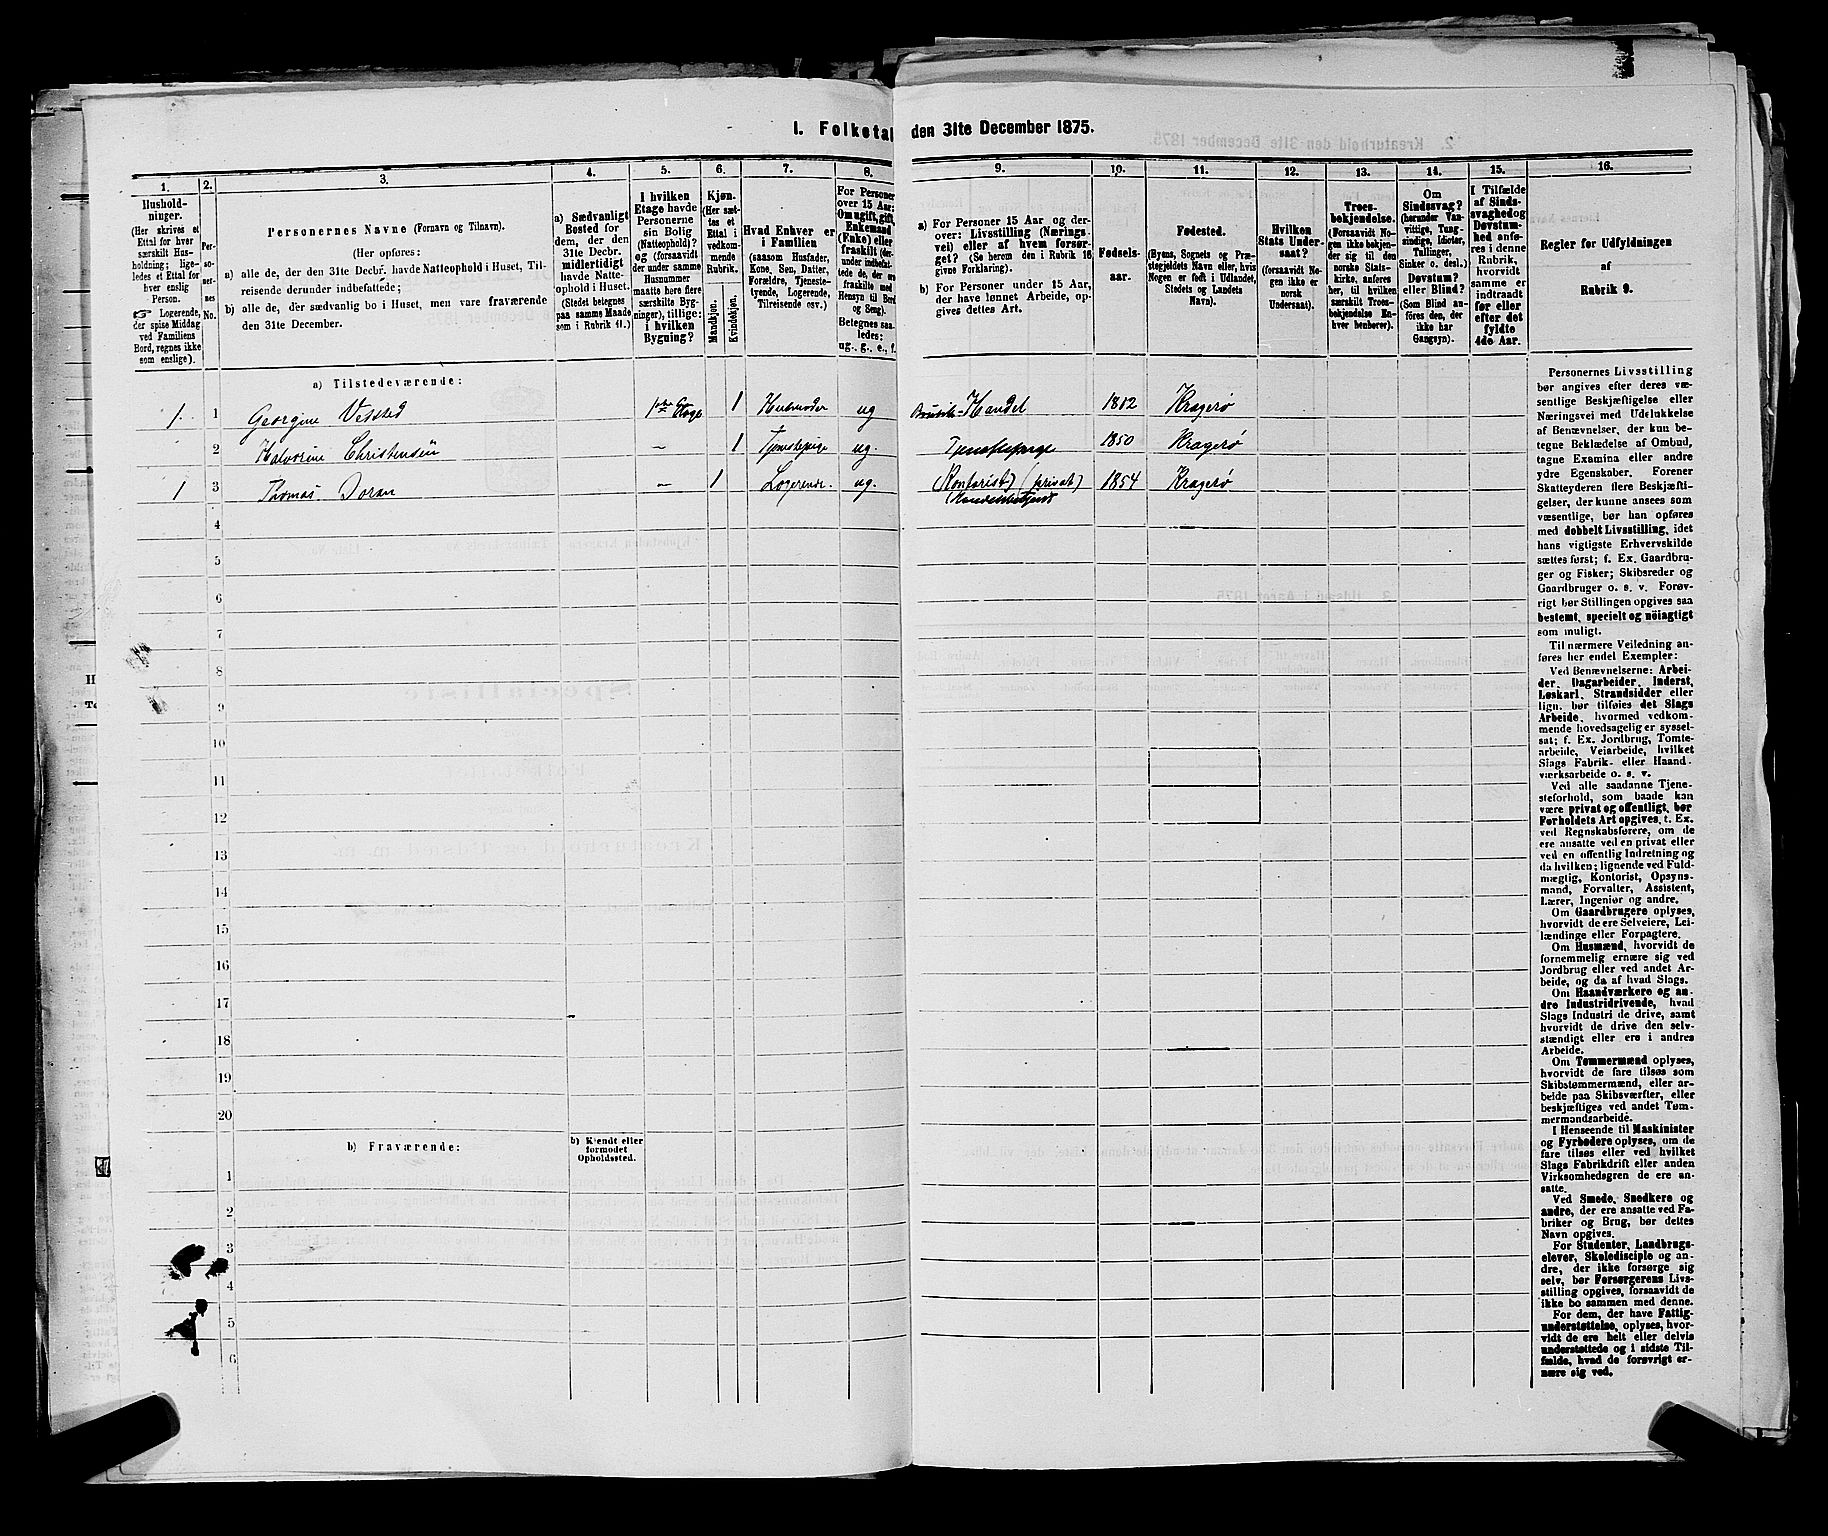 1. Folketal den 31te December 1875.
1. 2. 3. 4. 5. 6. 7. 8. 9. 10. 11. 12. 13. 14. 15. 16.
Hushold-
ninger.
(Her skrives et
Ettal for hver
særskilt Hus-
holdning; lige-
ledes et Ettal for
hver enslig
Person.
☞ Logerende,
der spise Middag
ved Familiens
Bord, regnes ikke
som enslige).
Per-
so-
ner-
nes
No.
Personernes Navne (Fornavn og Tilnavn).
(Her opføres:
a) alle de, der den 31te Decbr. havde Natteophold i Huset, Til-
reisende derunder indbefattede;
b) alle de, der sædvanlig bo i Huset, men vare fraværende
den 31te December.
a) Sædvanligt
Bosted for
dem, der den
31te Decbr.
midlertidigt
havde Natte-
ophold i Huset.
(Stedet betegnes
paa samme Maade
som i Rubrik 11.)
I hvilken
Etage havde
Personerne
sin Bolig
(Natteophold)?
og (forsaavidt
der under samme
Husnummer
maatte høre flere
særskilte Byg-
ninger), tillige:
i hvilken
Bygning?
Kjøn.
(Her sæt-
tes et
Ettal i
vedkom-
mende
Rubrik.
Mandkjøn.
Kvindekjøn.
Hvad Enhver er
i Familien
(saasom Husfader,
Kone, Søn, Datter,
Forældre, Tjeneste-
tyende, Logerende,
Tilreisende osv.)
For Personer
over 15 Aar:
Om ugift, gift,
Enkemand
(Enke) eller
fraskilt (der-
under indbefat-
tede de, der ere
fraskilte med
Hensyn til Bord
og Seng).
Betegnes saa-
ledes:
ug., g., e., f.
a) For Personer 15 Aar og der-
over: Livsstilling (Nærings-
vei) eller af hvem forsør-
get? (Se herom den i Rubrik 16
givne Forklaring).
b) For Personer under 15 Aar,
der have lønnet Arbeide, op-
gives dettes Art.
Fødsels-
aar.
Fødested.
(Byens, Sognets og Præ-
stegjeldets Navn eller, hvis
Nogen er født i Udlandet,
Stedets og Landets
Navn).
Hvilken
Stats Under-
saat?
(forsaavidt No-
gen ikke er
norsk
Undersaat).
Troes-
bekjendelse.
(Forsaavidt No-
gen ikke bekjen-
der sig til den
norske Stats-
kirke, anføres
her, til hvilken
særskilt Troes-
bekjendelse En-
hver henhører).
Om
Sindssvag?
(herunder Van-
vittige, Tung-
sindige, Idioter,
Tullinger,
Sinker o. desl.)
Døvstum?
eller Blind?
(Som Blind an-
føres den, der
ikke har
Gangsyn).
I Tilfælde
af Sinds-
svaghed og
Døvstum-
hed anfø-
res i denne
Rubrik,
hvorvidt
samme er
indtraadt
før eller
efter det
fyldte
4de Aar.
Regler for Udfyldningen
af
Rubrik 9.
a) Tilstedeværende:
1. 1 Georgine 1ste Etage 1 Husmoder ug Handel 1812 Kragerø
2 Halvorine Christensen – 1 Tjenestepige ug. Tjenestepige 1850 Kragerø
1 3 Thomas Doran – 1 Logerende. ug. (Kontorist) (privat) 1854 Kragerø
(Handelsbetjent
4
5
6
7
8
9
10
11
12
13
14
15
16
17
18
19
20
b) Fraværende:
b) Kjendt eller
formodet
Opholdssted.
1
2
3
4
5
6
Personernes Livsstilling
bør angives efter deres væ-
sentlige Beskjæftigelse eller
Næringsvei med Udelukkelse
af Benævnelser, der kun be-
tegne Beklædelse af Ombud,
tagne Examina eller andre
ydre Egenskaber. Forener
Skatteyderen flere Beskjæfti-
gelser, der kunne ansees som
væsentlige, bør han opføres
med dobbelt Livsstilling, idet
hans vigtigste Erhvervskilde
sættes først; f. Ex. Gaardbru-
ger og Fisker; Skibsreder og
Gaardbruger o. s. v. Forøv-
rigt bør Stillingen opgives saa
bestemt, specielt og nöiagtigt
som muligt.
Til nærmere Veiledning an-
føres her endel Exempler:
Ved Benævnelserne: Arbei-
der, Dagarbeider, Inderst,
Løskarl, Strandsidder eller
lign. bør tilføies det Slags
Arbeide, hvormed vedkom-
mende hovedsagelig er syssel-
sat; f. Ex. Jordbrug, Tomte-
arbeide, Veiarbeide, hvilket
Slags Fabrik- eller Haand-
værksarbeide o. s. v.
Ved alle saadanne Tjene-
steforhold, som baade kan
være privat og offentligt, bør
Forholdets Art opgives, t. Ex.
ved Regnskabsførere, om de
ere ansatte ved en privat eller
ved en offentlig Indretning og
da hvilken; lignende ved Fuld-
mægtig, Kontorist, Opsyns-
mand, Forvalter, Assistent,
Lærer, Ingeniør og andre.
Om Gaardbrugere oplyses,
hvorvidt de ere Selveiere, Lei-
lændinge eller Forpagtere.
Om Husmænd, hvorvidt de
fornemmelig ernære sig ved
Jordbrug eller ved andet Ar-
beide, og da af hvad Slags.
Om Haandværkere og an-
dre Industridrivende, hvad
Slags Industri de drive, samt
hvorvidt de drive den selv-
stændigt eller ere i andres
Arbeide.
Om Tømmermænd oplyses,
hvorvidt de fare tilsøs som
Skibstømmermænd, eller ar-
beide paa Skibsværfter, eller
beskjæftiges ved andet Tøm-
mermandsarbeide.
I Henseende til Maskinister
og Fyrbødere oplyses, om de
fare tilsøs eller ved hvilket
Slags Fabrikdrift eller anden
Virksomhedsgren de ere an-
satte.
Ved Smede, Snedkere og
andre, der ere ansatte ved Fa-
briker og Brug, bør dettes
Navn opgives.
For Studenter, Landbrugs-
elever, Skoledisciple og an-
dre, der ikke forsørge sig
selv, bør Forsørgerens Livs-
stilling opgives, forsaavidt de
ikke bo sammen med denne.
For dem, der have Fattig-
understøttelse, oplyses, hvor-
vidt de ere helt eller delvis
understøttede og i sidste Til-
fælde, hvad de forøvrigt er-
nære sig ved.